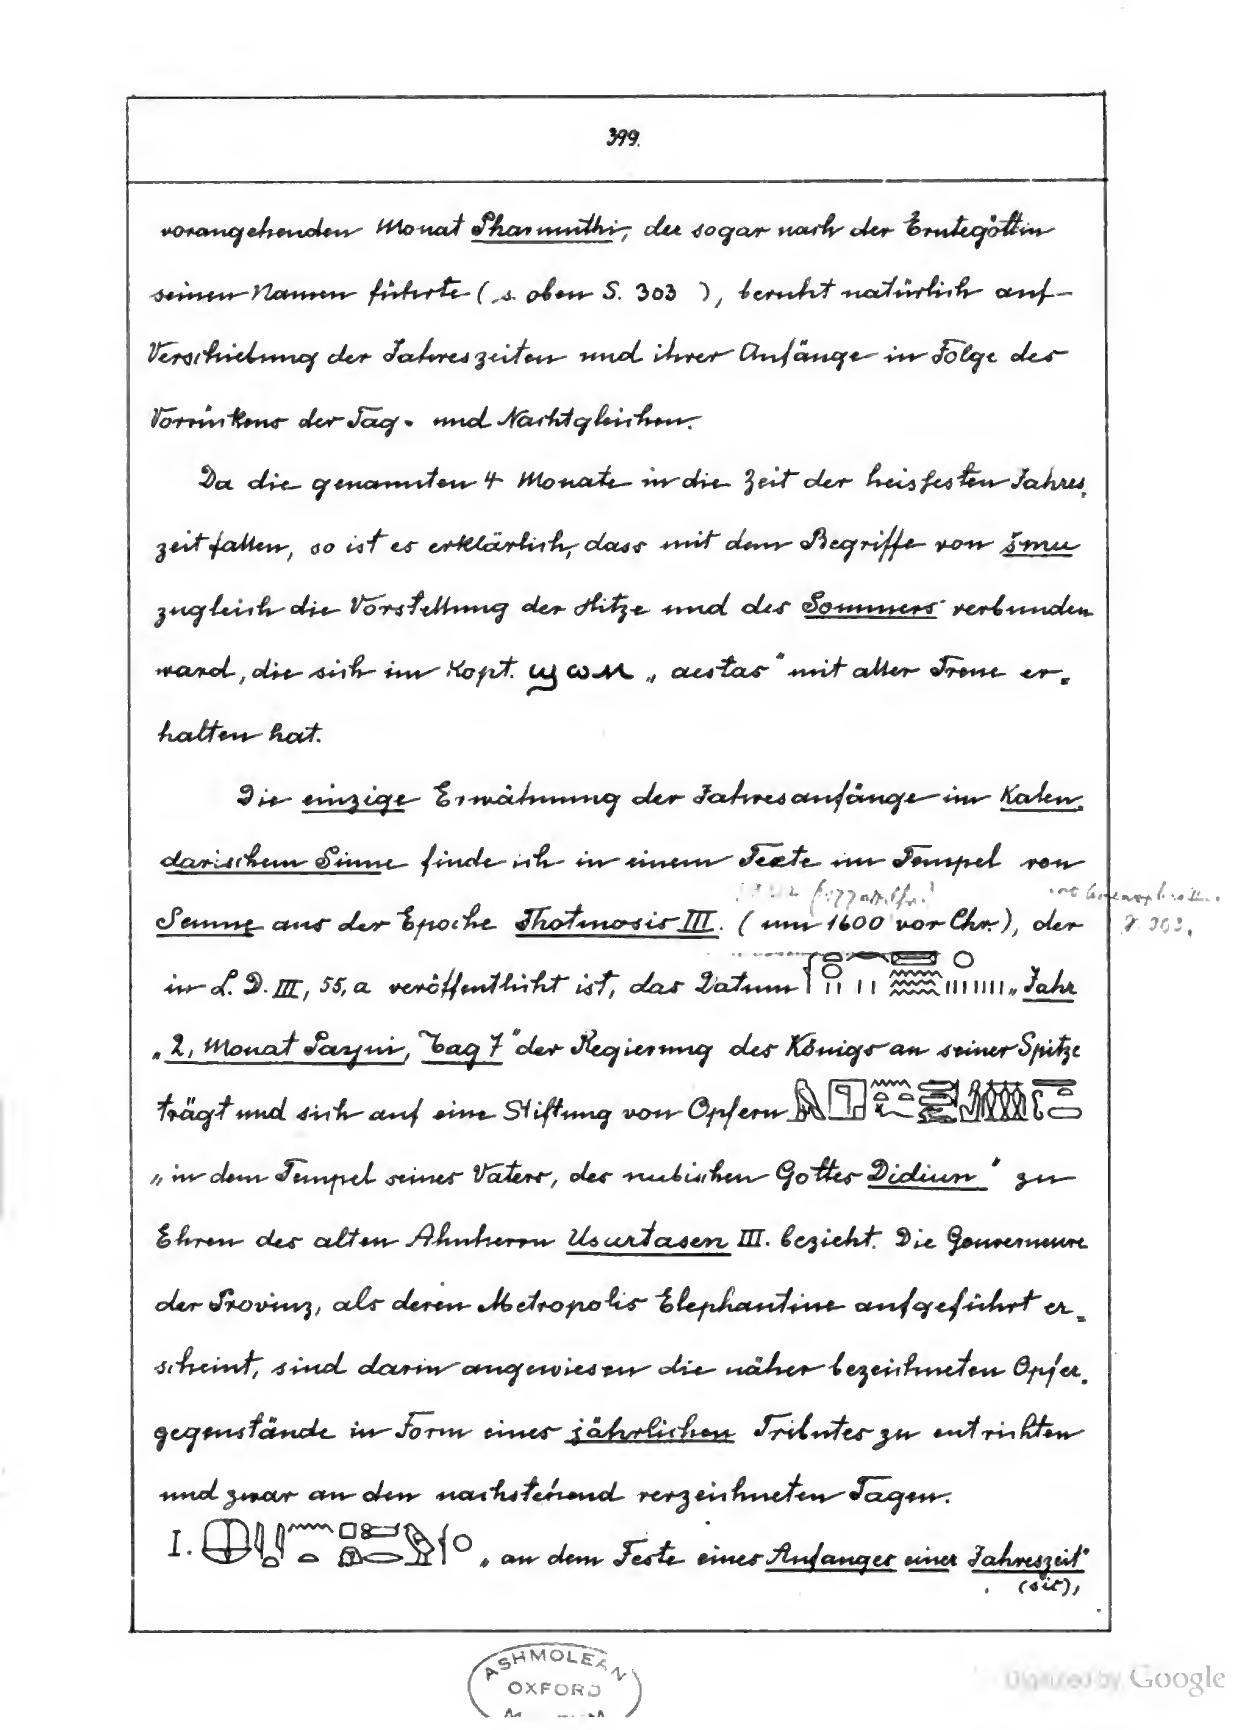 399.
vorangehenden Monat Pharmuthi, der sogar nach der Erntegöttin
seinen Namen führte (s. oben S. 303), beruht natürlich auf
Verschiebung der Jahreszeiten und ihrer Anfänge in Folge des
Vorrückens der Tag- und Nachtgleichen.
Da die genannten 4 Monate in die Zeit der heissesten Jahres-
zeit fallen, so ist es erklärlich, dass mit dem Begriffe von šmu
zugleich die Vorstellung der Hitze und des Sommers verbunden
ward, die sich im Kopt. ϣⲱⲙ „aestas“ mit aller Treue er-
halten hat.
Die einzige Erwähnung der Jahresanfänge im Kalen-
darischem Sinne finde ich in einem Texte im Tempel von
Semne aus der Epoche Thotmosis III. (um 1600 vor Chr.), der
P. 303.
in L. D. III, 55, a veröffentlicht ist, das Datum „Jahr
„2, Monat Payni, Tag 7“ der Regierung des Königs an seiner Spitze
trägt und sich auf eine Stiftung von Opfern
„in dem Tempel seines Vaters, des nubischen Gottes Didiun“ zu
Ehren des alten Ahnherrn Usurtasen III. bezieht. Die Gouverneure
der Provinz, als deren Metropolis Elephantine aufgeführt er-
scheint, sind darin angewiesen die näher bezeichneten Opfer-
gegenstände in Form eines jährlichen Tributes zu entrichten
und zwar an den nachstehend verzeichneten Tagen.
I. „an dem Feste eines Anfanges einer Jahreszeit“
(sic),
ASHMOLEAN
OXFORD
Digitized by Google